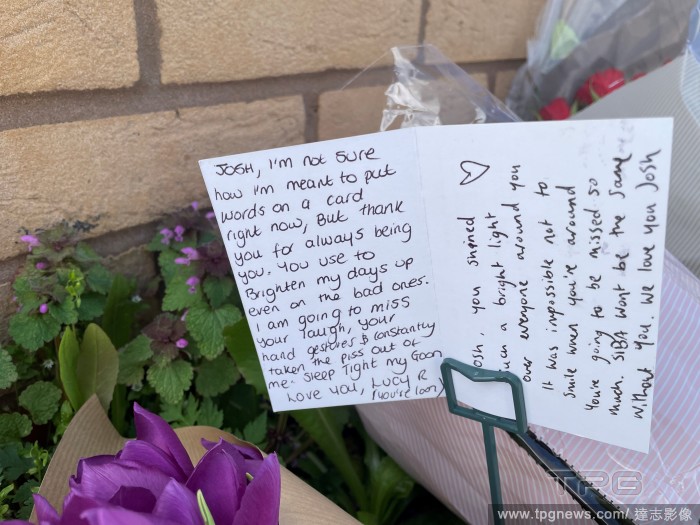 JOSH, I'm not sure
how I'm meant to put
words on a card
right now, But thank
you for always being
you. You use to
Brighten my days up
even on the bad ones.
I am going to miss
your laugh, your
hand gestures & constantly
taken the piss out of
me. Sleep Tight my Goon
Love you, LUCY R
(you're loon)
osh, you shined
such a bright light
over everyone around you
It was impossible not to
Smile when you're around
You're going to be missed so
much. SIBA Wont be the same
without you. We love you Josh
TPG
www.tpgnews.com/達志影像